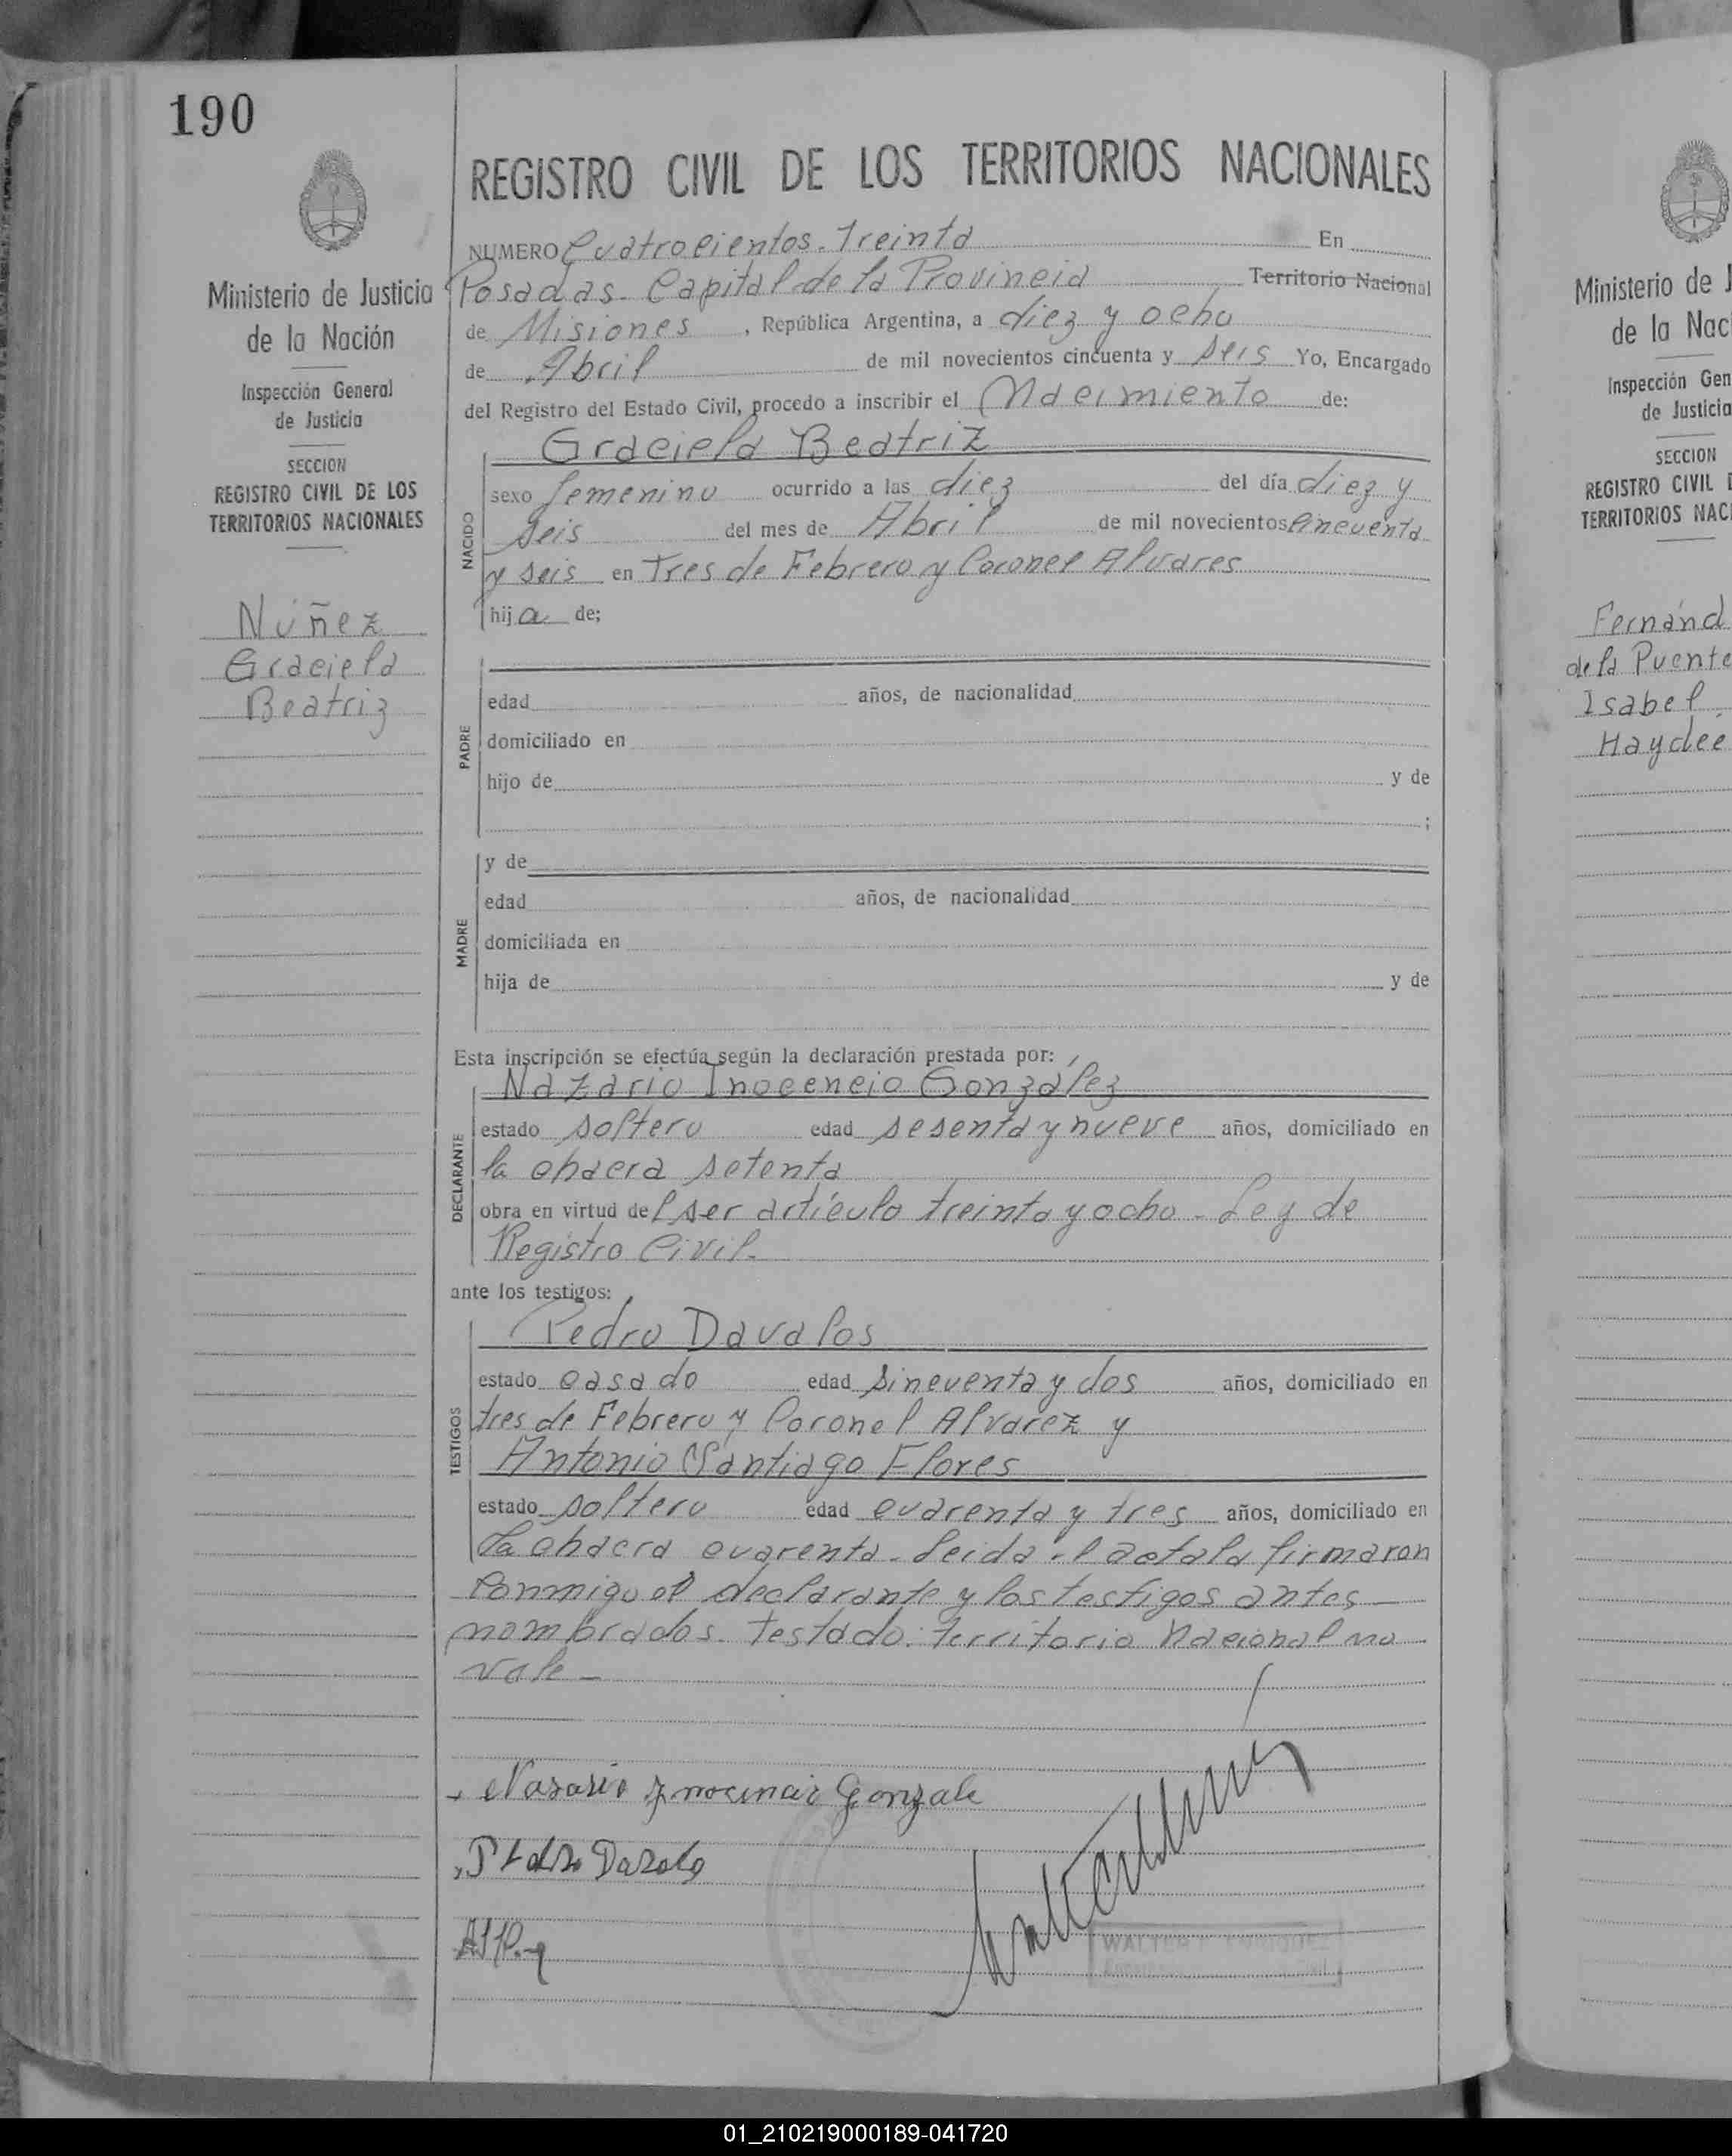 190
REGISTRO CIVIL DE LOS TERRITORIOS NACIONALES
Ministerio de Justicia
de la Nación
Inspección General
de Justicia
SECCION
REGISTRO CIVIL DE LOS
TERRITORIOS NACIONALES
Núñez
Graciela
Beatriz
NUMERO Cuatrocientos. Treinta En
Posadas. Capital de la Provincia Territorio Nacional
de Misiones, República Argentina, a diez y ocho
de Abril de mil novecientos cincuenta y seis Yo, Encargado
del Registro del Estado Civil, procedo a inscribir el Nacimiento de:
Graciela Beatriz
NACIDO
sexo femenino ocurrido a las diez del día diez y
seis del mes de Abril de mil novecientos cincuenta
y seis en Tres de Febrero y Coronel Alvares
hija de;
PADRE
edad años, de nacionalidad
domiciliado en
hijo de y de
;
MADRE
y de
edad años, de nacionalidad
domiciliada en
hija de y de
Esta inscripción se efectúa según la declaración prestada por:
DECLARANTE
Nazario Inocencio González
estado soltero edad sesenta y nueve años, domiciliado en
la chacra setenta
obra en virtud del ser artículo treinta y ocho - Ley de
Registro Civil.
ante los testigos:
TESTIGOS
Pedro Davalos
estado casado edad sincuenta y dos años, domiciliado en
tres de Febrero y Coronel Alvarez y
Antonio Santiago Flores
estado soltero edad cuarenta y tres años, domiciliado en
La chacra cuarenta. Leida el acta la firmaron
conmigo el declarante y los testigos antes
nombrados. Testado: territorio Nacional no
vale -
Nasario Gonzale
WALTER
Ministerio de J
de la Nac
Inspección Gen
de Justicia
SECCION
REGISTRO CIVIL D
TERRITORIOS NACI
Fernánd
de la Puente
Isabel
Haydée
01_210219000189-041720